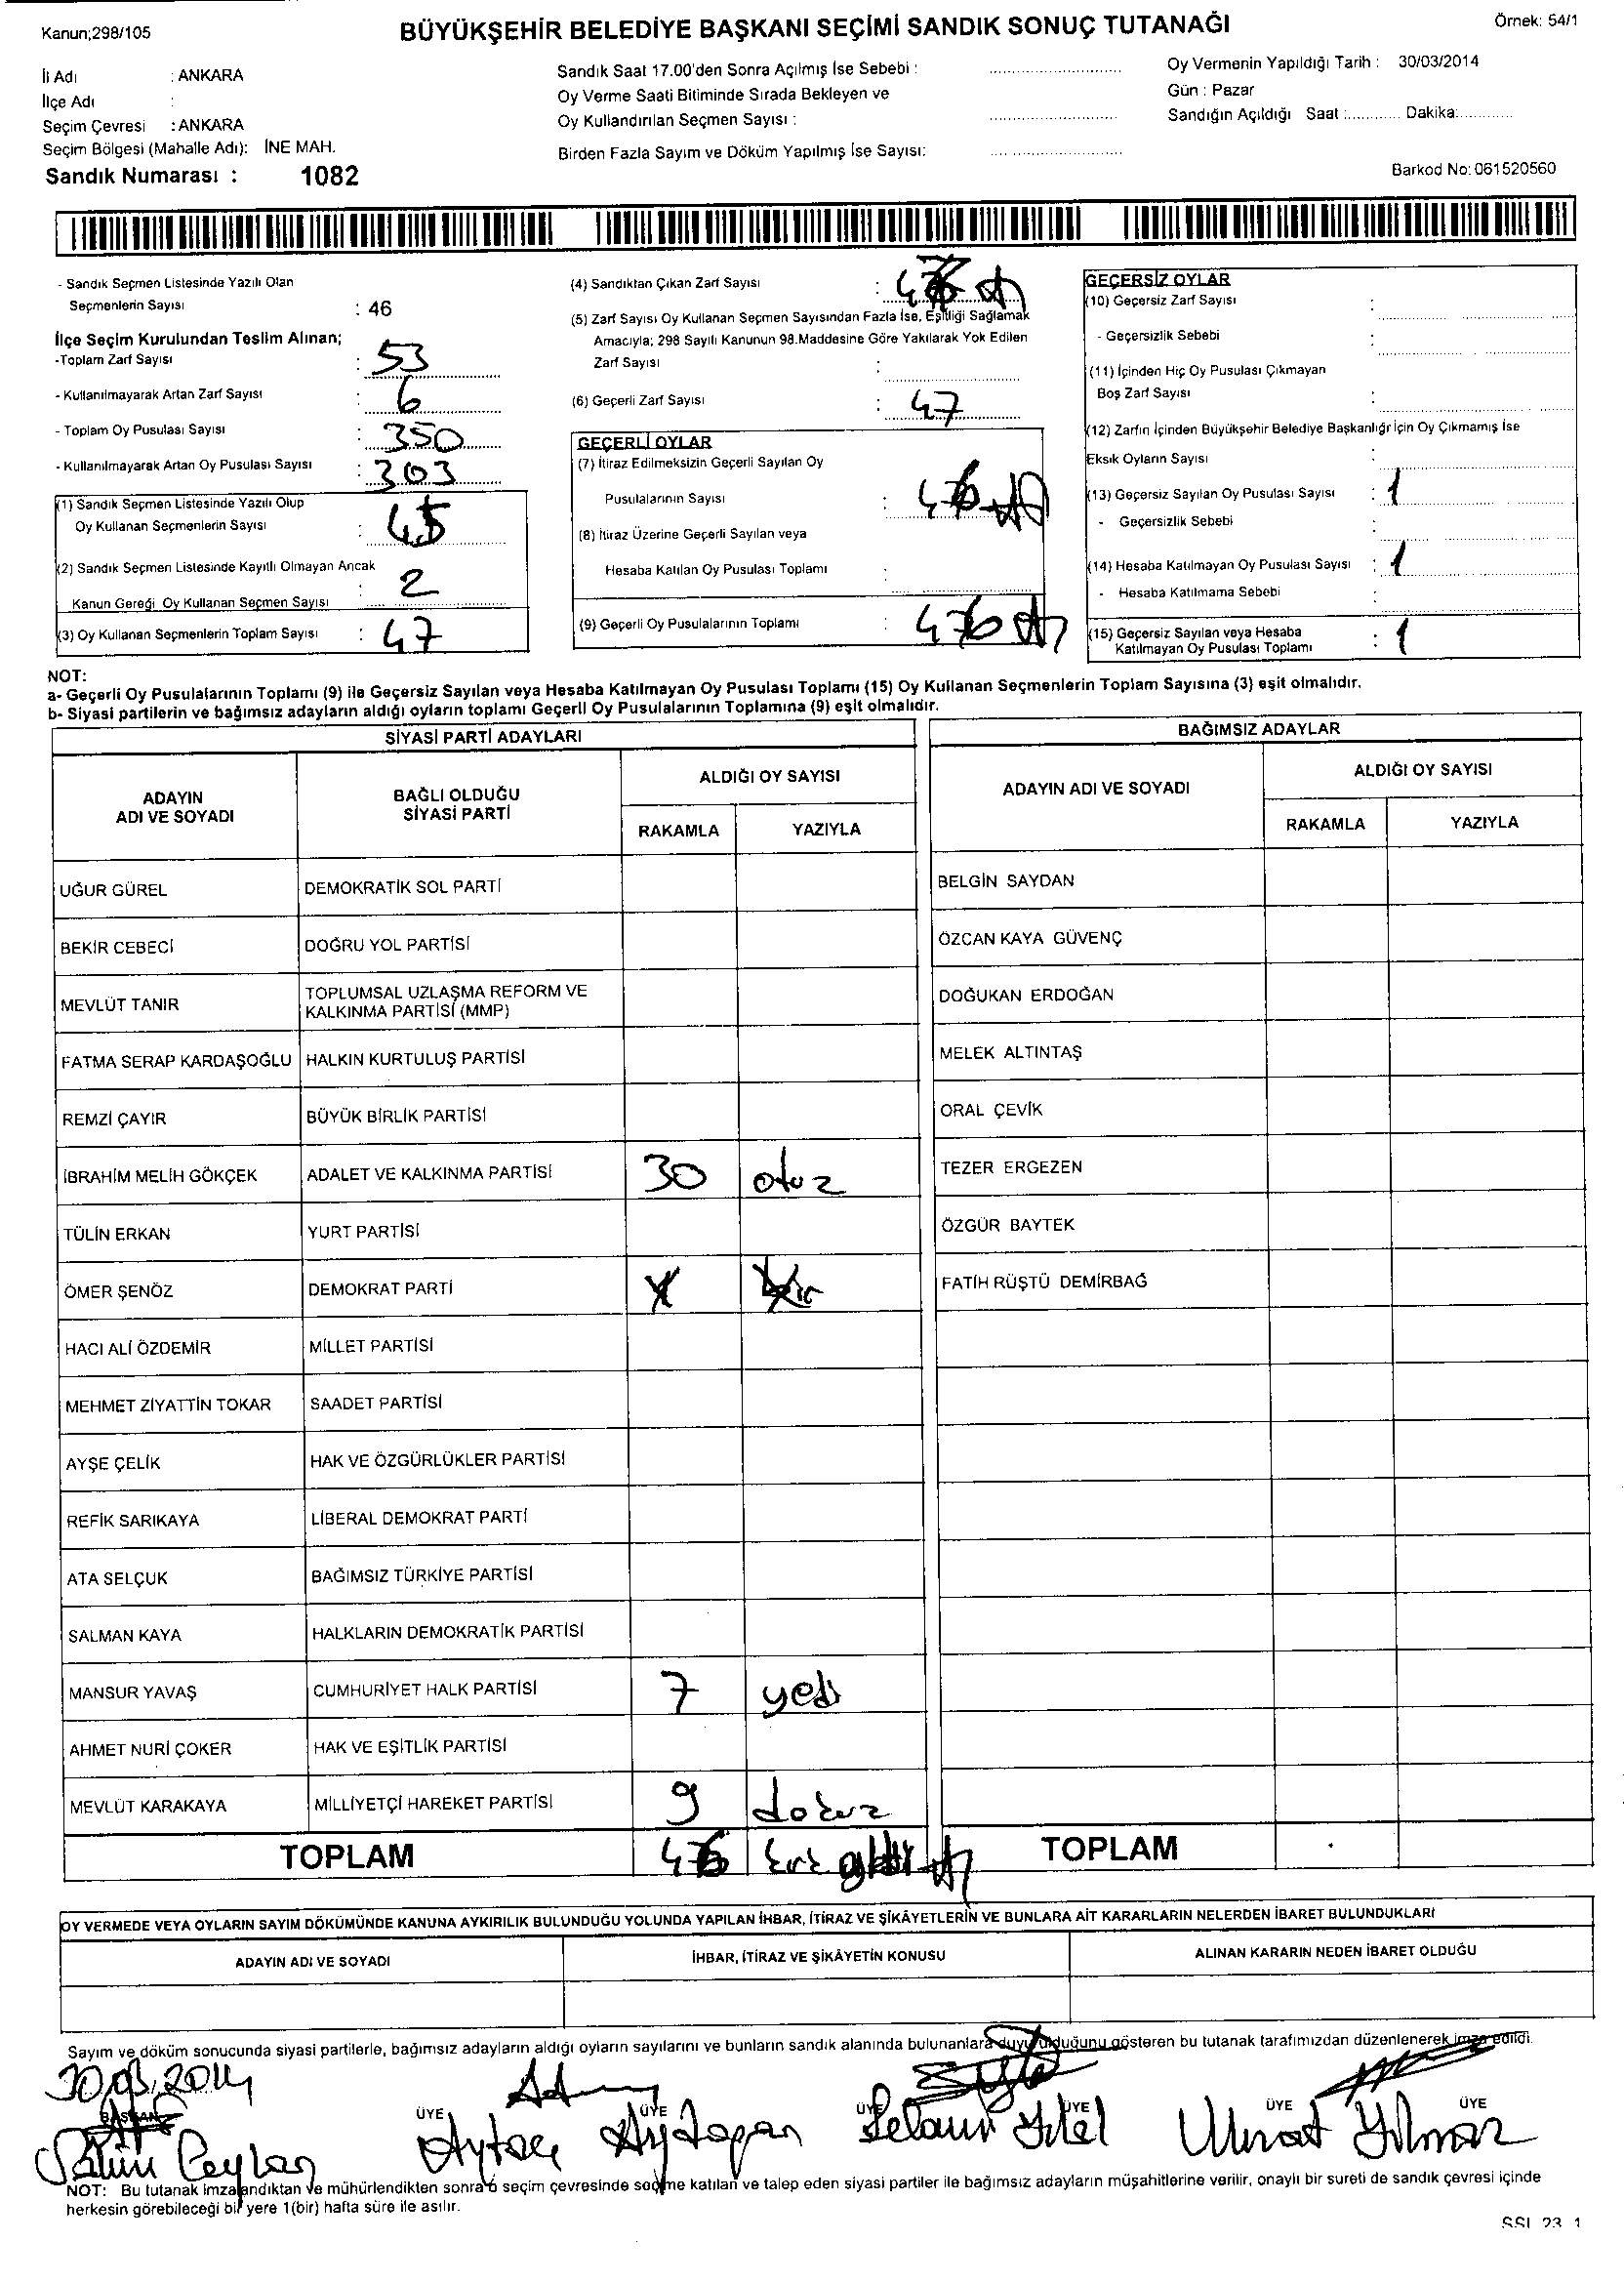 Kanun;298/105
BÜYÜKŞEHİR BELEDİYE BAŞKANI SEÇİMİ SANDIK SONUÇ TUTANAĞI
Örnek: 54/1
İl Adı : ANKARA
İlçe Adı :
Seçim Çevresi : ANKARA
Seçim Bölgesi (Mahalle Adı): İNE MAH.
Sandık Numarası : 1082
Sandık Saat 17.00'den Sonra Açılmış İse Sebebi :
Oy Verme Saati Bitiminde Sırada Bekleyen ve
Oy Kullandırılan Seçmen Sayısı :
Birden Fazla Sayım ve Döküm Yapılmış İse Sayısı:
Oy Vermenin Yapıldığı Tarih : 30/03/2014
Gün : Pazar
Sandığın Açıldığı Saat :............ Dakika:............
Barkod No: 061520560
- Sandık Seçmen Listesinde Yazılı Olan
Seçmenlerin Sayısı : 46
İlçe Seçim Kurulundan Teslim Alınan;
-Toplam Zarf Sayısı : 53
- Kullanılmayarak Artan Zarf Sayısı : 6
- Toplam Oy Pusulası Sayısı : 350
- Kullanılmayarak Artan Oy Pusulası Sayısı : 303
(1) Sandık Seçmen Listesinde Yazılı Olup
Oy Kullanan Seçmenlerin Sayısı : 45
(2) Sandık Seçmen Listesinde Kayıtlı Olmayan Ancak
Kanun Gereği Oy Kullanan Seçmen Sayısı : 2
(3) Oy Kullanan Seçmenlerin Toplam Sayısı : 47
(4) Sandıktan Çıkan Zarf Sayısı :
(5) Zarf Sayısı Oy Kullanan Seçmen Sayısından Fazla İse, Eşitliği Sağlamak
Amacıyla; 298 Sayılı Kanunun 98.Maddesine Göre Yakılarak Yok Edilen
Zarf Sayısı :
(6) Geçerli Zarf Sayısı : 47
GEÇERLİ OYLAR
(7) İtiraz Edilmeksizin Geçerli Sayılan Oy
Pusulalarının Sayısı :
(8) İtiraz Üzerine Geçerli Sayılan veya
Hesaba Katılan Oy Pusulası Toplamı :
(9) Geçerli Oy Pusulalarının Toplamı :
GEÇERSİZ OYLAR
(10) Geçersiz Zarf Sayısı :
- Geçersizlik Sebebi :
(11) İçinden Hiç Oy Pusulası Çıkmayan
Boş Zarf Sayısı :
(12) Zarfın İçinden Büyükşehir Belediye Başkanlığı İçin Oy Çıkmamış İse
Eksik Oyların Sayısı :
(13) Geçersiz Sayılan Oy Pusulası Sayısı : 1
- Geçersizlik Sebebi :
(14) Hesaba Katılmayan Oy Pusulası Sayısı : 1
- Hesaba Katılmama Sebebi :
(15) Geçersiz Sayılan veya Hesaba
Katılmayan Oy Pusulası Toplamı : 1
NOT:
a- Geçerli Oy Pusulalarının Toplamı (9) ile Geçersiz Sayılan veya Hesaba Katılmayan Oy Pusulası Toplamı (15) Oy Kullanan Seçmenlerin Toplam Sayısına (3) eşit olmalıdır.
b- Siyasi partilerin ve bağımsız adayların aldığı oyların toplamı Geçerli Oy Pusulalarının Toplamına (9) eşit olmalıdır.
SİYASİ PARTİ ADAYLARI
ADAYIN ADI VE SOYADI
BAĞLI OLDUĞU SİYASİ PARTİ
ALDIĞI OY SAYISI
RAKAMLA YAZIYLA
UĞUR GÜREL DEMOKRATİK SOL PARTİ
BEKİR CEBECİ DOĞRU YOL PARTİSİ
MEVLÜT TANIR TOPLUMSAL UZLAŞMA REFORM VE
KALKINMA PARTİSİ (MMP)
FATMA SERAP KARDAŞOĞLU HALKIN KURTULUŞ PARTİSİ
REMZİ ÇAYIR BÜYÜK BİRLİK PARTİSİ
İBRAHİM MELİH GÖKÇEK ADALET VE KALKINMA PARTİSİ 30 otuz
TÜLİN ERKAN YURT PARTİSİ
ÖMER ŞENÖZ DEMOKRAT PARTİ
HACI ALİ ÖZDEMİR MİLLET PARTİSİ
MEHMET ZİYATTİN TOKAR SAADET PARTİSİ
AYŞE ÇELİK HAK VE ÖZGÜRLÜKLER PARTİSİ
REFİK SARIKAYA LİBERAL DEMOKRAT PARTİ
ATA SELÇUK BAĞIMSIZ TÜRKİYE PARTİSİ
SALMAN KAYA HALKLARIN DEMOKRATİK PARTİSİ
MANSUR YAVAŞ CUMHURİYET HALK PARTİSİ 7 yedi
AHMET NURİ ÇOKER HAK VE EŞİTLİK PARTİSİ
MEVLÜT KARAKAYA MİLLİYETÇİ HAREKET PARTİSİ 9 dokuz
TOPLAM kırk
BAĞIMSIZ ADAYLAR
ADAYIN ADI VE SOYADI
ALDIĞI OY SAYISI
RAKAMLA YAZIYLA
BELGİN SAYDAN
ÖZCAN KAYA GÜVENÇ
DOĞUKAN ERDOĞAN
MELEK ALTINTAŞ
ORAL ÇEVİK
TEZER ERGEZEN
ÖZGÜR BAYTEK
FATİH RÜŞTÜ DEMİRBAĞ
TOPLAM
OY VERMEDE VEYA OYLARIN SAYIM DÖKÜMÜNDE KANUNA AYKIRILIK BULUNDUĞU YOLUNDA YAPILAN İHBAR, İTİRAZ VE ŞİKÂYETLERİN VE BUNLARA AİT KARARLARIN NELERDEN İBARET BULUNDUKLARI
ADAYIN ADI VE SOYADI İHBAR, İTİRAZ VE ŞİKÂYETİN KONUSU ALINAN KARARIN NEDEN İBARET OLDUĞU
Sayım ve döküm sonucunda siyasi partilerle, bağımsız adayların aldığı oyların sayılarını ve bunların sandık alanında bulunanlara duyurulduğunu gösteren bu tutanak tarafımızdan düzenlenerek imza edildi.
30.03.2014
BAŞKAN ÜYE ÜYE ÜYE ÜYE ÜYE ÜYE
Ceylan Aytaç Aydoğan Murat Yılmaz
NOT: Bu tutanak imzalandıktan ve mühürlendikten sonra o seçim çevresinde seçime katılan ve talep eden siyasi partiler ile bağımsız adayların müşahitlerine verilir, onaylı bir sureti de sandık çevresi içinde
herkesin görebileceği bir yere 1(bir) hafta süre ile asılır.